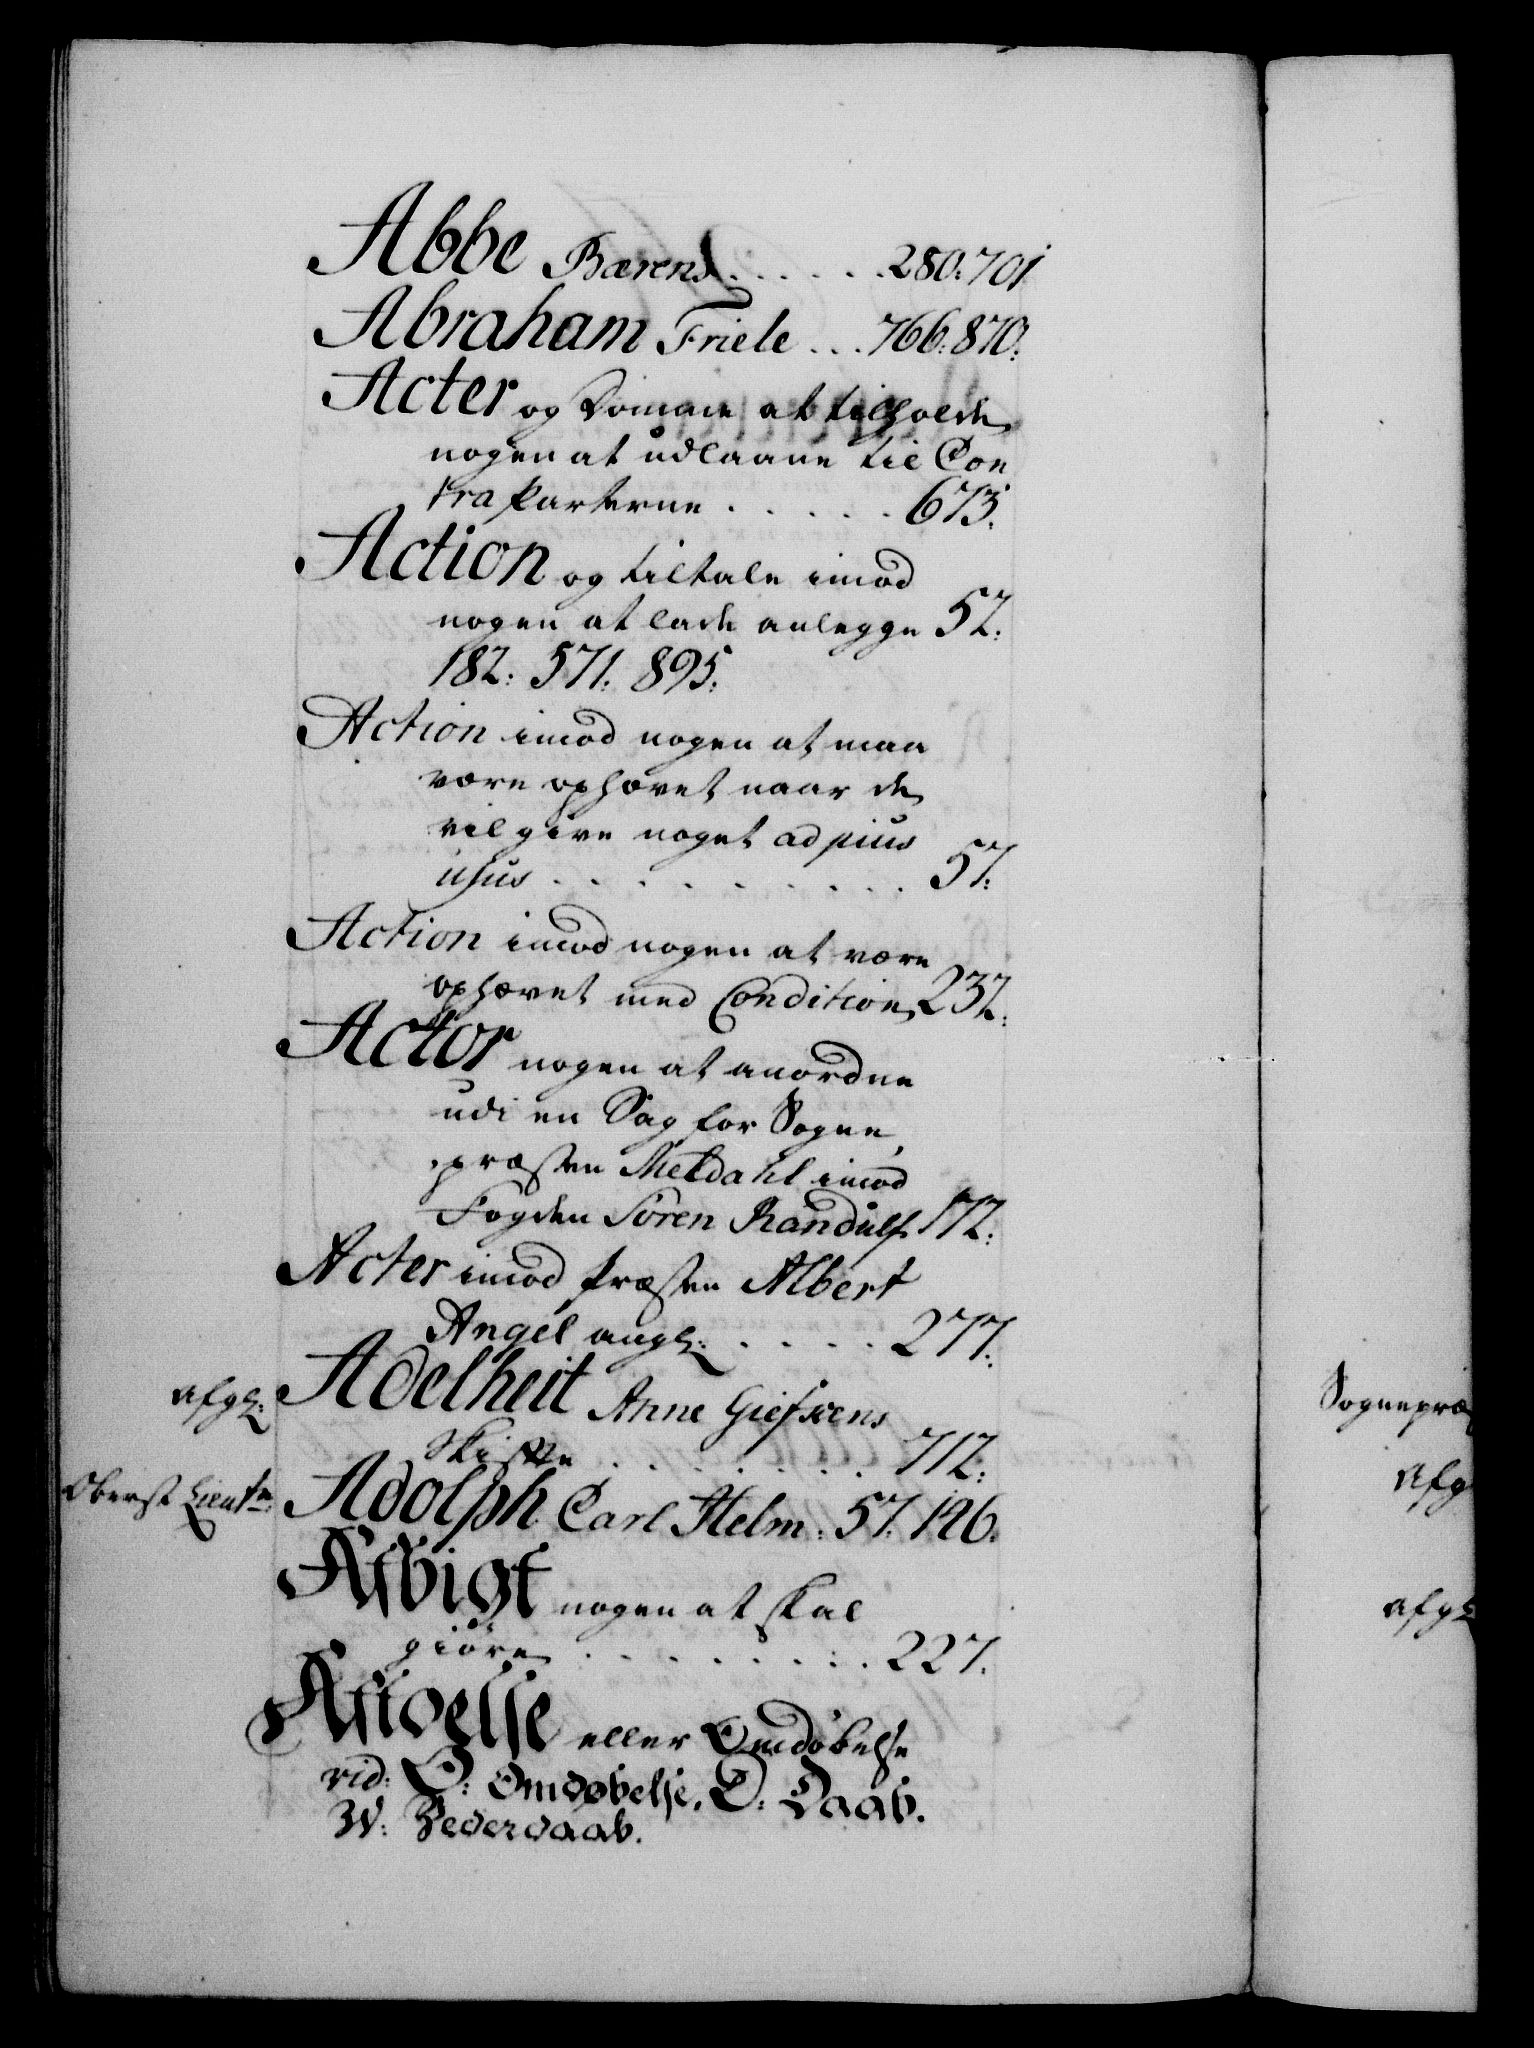 Abbe Bærens . . . . . . 280: 701
Abraham Friele . . . 766: 870:
Acter og Domme at tilholde
nogen at udlaane til Con
tra Parterne . . . . . 673:
Action og tiltale imod
nogen at lade anlegge 52:
182: 571: 895:
Action imod nogen at maa
være ophævet naar de
vil give noget ad pius
usus . . . . . . . . . 57:
Action imod nogen at være
ophævet med Condition 232:
Actor nogen at anordne
udi en Sag for Sogne
præsten Meldahl imod
Fogden Sören Randulf 172:
Acter imod Præsten Albert
Angel angl: . . . . 277:
afgl: Adelheit Anne Giefsens
Skifte . . . . . . . 712:
Oberst Lieutn: Adolph Carl Helm: 57: 126:
Afbigt nogen at skal
giøre . . . . . . . . 227.
Afdøelse eller Omdøbelse
vid: O: Omdøbelse, D: Daab.
W: Vederdaab.
Sognepræ
Afg
afgl